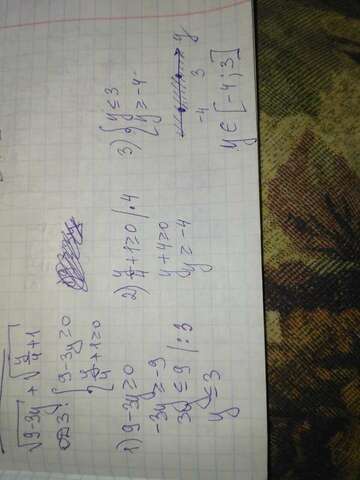 √9-3y + √y/4+1
ОДЗ: { 9-3y ≥ 0
{ y/4+1 ≥ 0
1) 9-3y ≥ 0
-3y ≥ -9
3y ≤ 9 | : 3
y ≤ 3
2) y/4+1 ≥ 0 | · 4
y+4 ≥ 0
y ≥ -4
3) { y ≤ 3
{ y ≥ -4
-4 3 y
y ∈ [-4; 3]